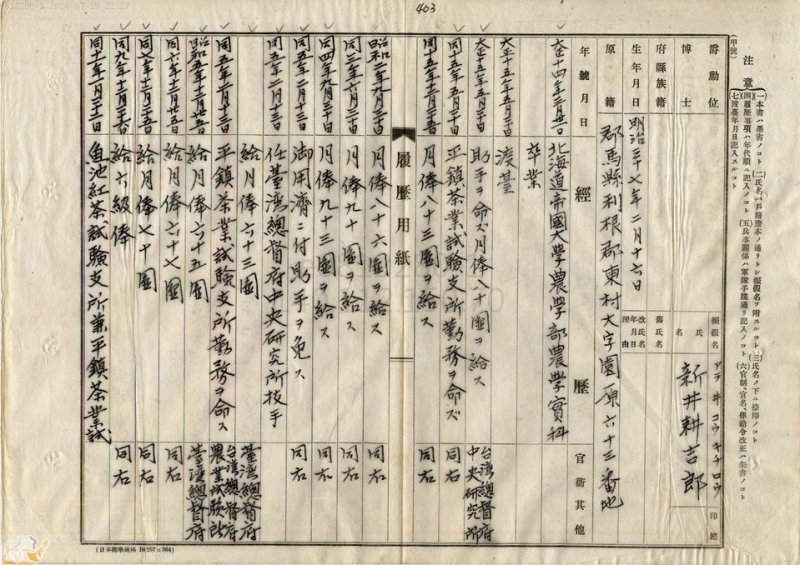 403
(甲號)
注意
(一)本書ハ墨書ノコト (二)氏名ハ戶籍謄本ノ通リトシ振假名ヲ附スルコト (三)氏名ノ下ニ捺印ノコト
(四)履歷事項ハ年代順ニ記入ノコト (五)兵事關係ハ軍隊手牒通リ記入ノコト (六)官制、官名、俸給令改正ハ朱書ノコト
(七)渡臺年月日記入スルコト
爵勳位
博士
府縣族籍
生年月日
明治三七年二月十六日
原籍
群馬縣利根郡東村大字園原六十三番地
振假名
アラヰコウキチロウ
氏名
新井耕吉郎
印鑑
舊氏名
改氏名
年月日
理由
年號月日
經歷
官衙其他
大正十四年三月
北海道帝國大學農學部農學實科
卒業
大正十五年五月
渡臺
大正十五年五月
助手ヲ命ズ月俸八十圓ヲ給ス
台湾總督府
中央研究所
同十五年
平鎮茶業試驗支所勤務ヲ命ズ
同右
同十五年十二月
月俸八十三圓ヲ給ス
同右
履歷用紙
昭和二年九月三十日
月俸八十六圓ヲ給ス
同右
同三年六月
月俸九十圓ヲ給ス
同右
同四年九月三十日
月俸九十三圓ヲ給ス
同右
同五年二月十三日
御用濟ニ付助手ヲ免ス
同右
同五年二月十三日
任臺灣總督府中央研究所技手
給月俸六十三圓
臺灣總督府
同五年
平鎮茶業試驗支所勤務ヲ命ス
台湾總督府
農業試驗所
昭和五年十二月
給月俸六十五圓
臺灣總督府
同六年十二月廿五日
給月俸六十七圓
同右
同七年十二月
給月俸七十圓
同右
同九年十二月
給六級俸
同右
同十一年
魚池紅茶試驗支所兼平鎮茶業試
(日本標準規格 B4 257×364)